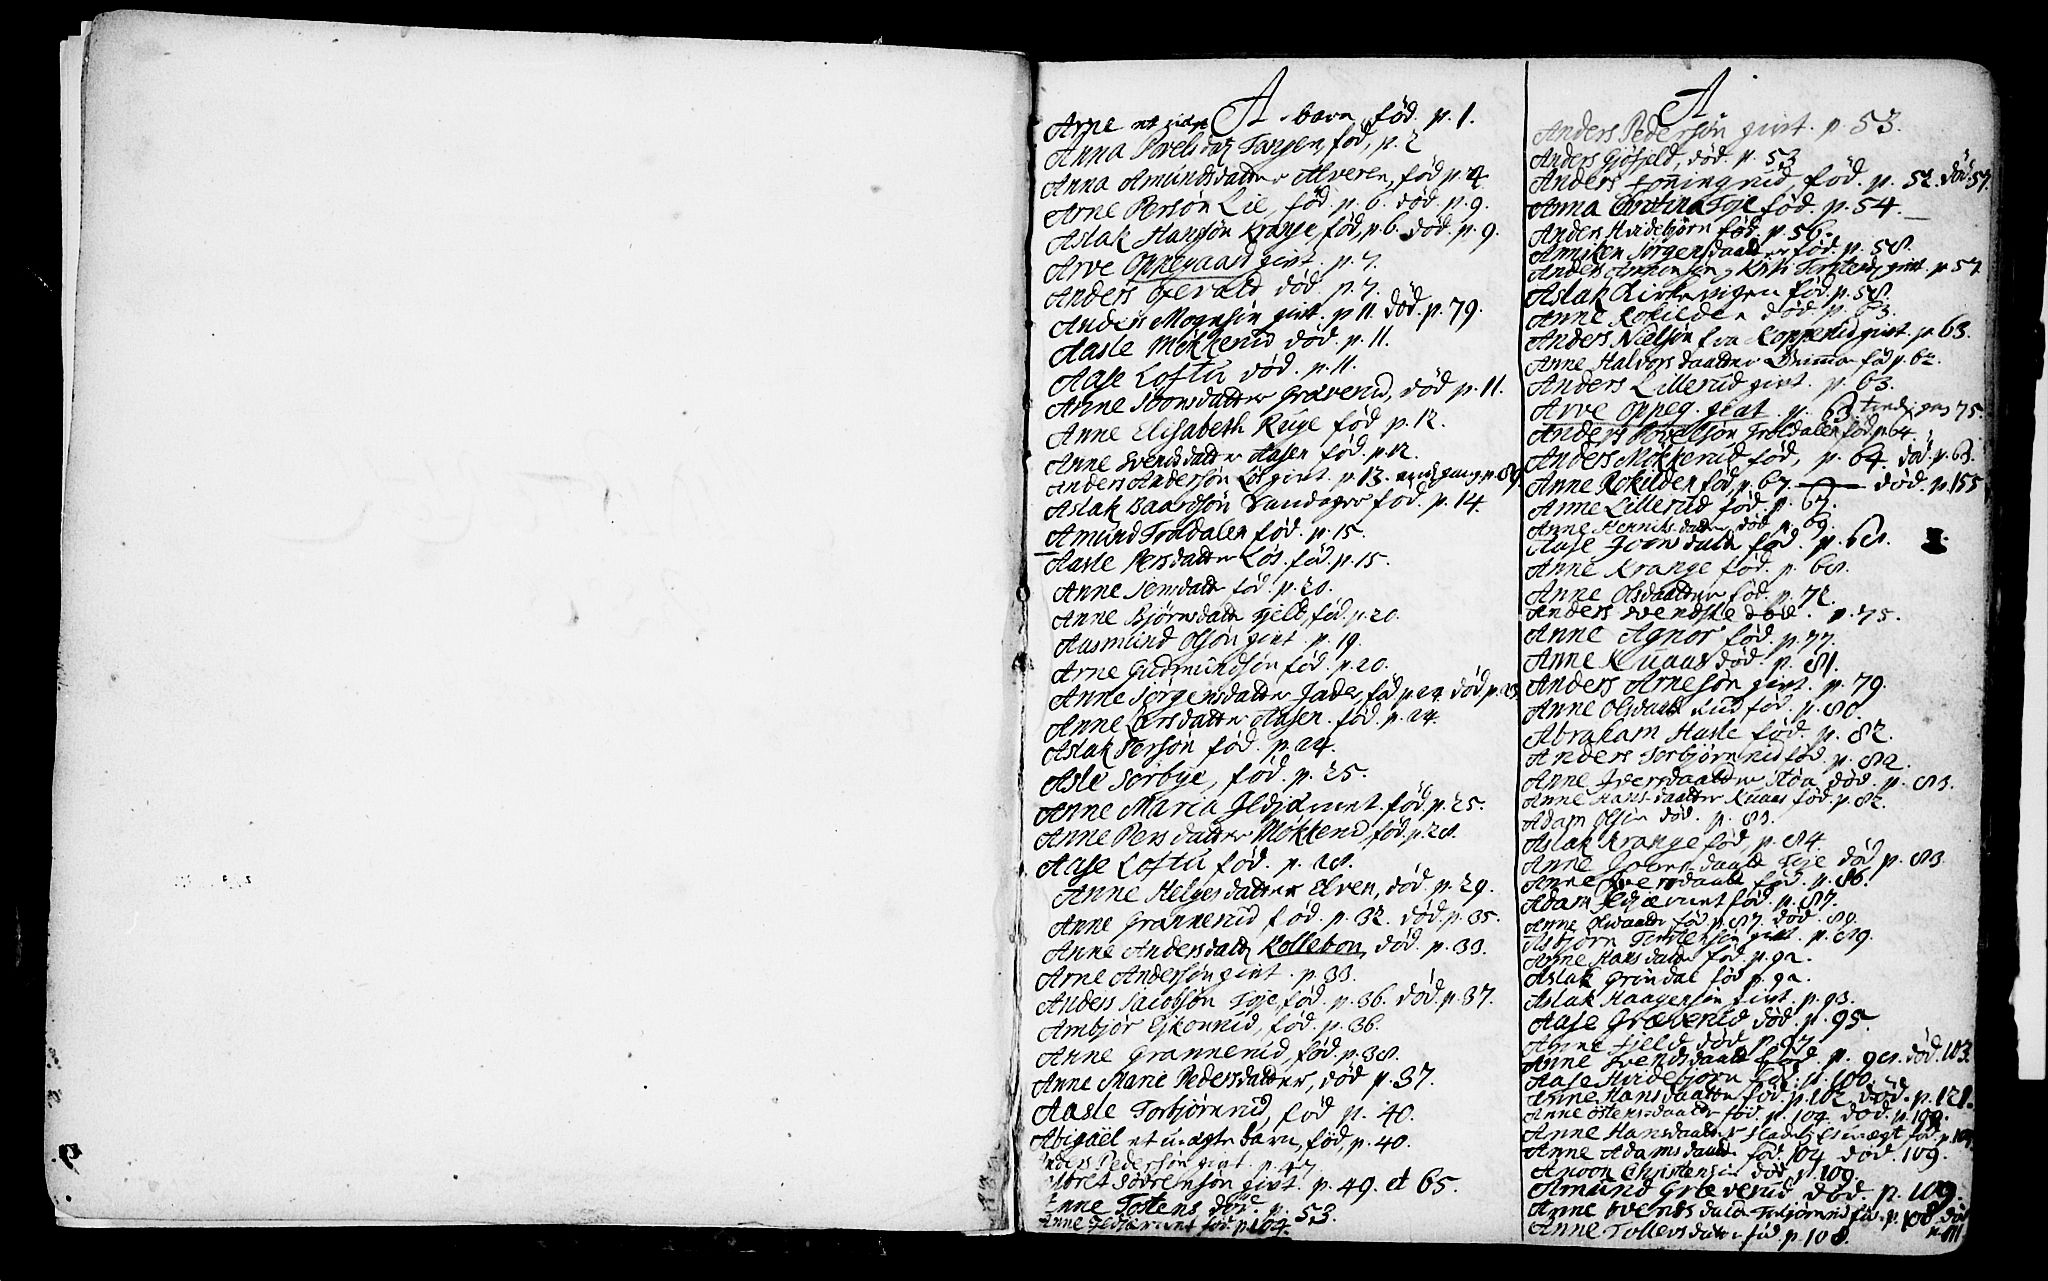 A
Arne et uægte barn, fød. p. 1.
Anna Povelsdatt Tangen, fød, p. 2
Anna Amundsdatter Alveren, fød p. 4.
Arne Persøn Lie, fød. p. 6. død. p. 9.
Aslak Hansøn Krange, fød, p. 6. død. p. 9.
Arve Oppegaard givt. p. 7.
Anders Oxevald død. p. 7.
Anders Mognsøn givt. p 11. død. p. 79.
Aasle Møkkerud død. p. 11.
Aase Loftu død. p. 11.
Anne Simonsdatter Græverud, død p. 11.
Anne Elisabeth Ruge fød p. 12.
Anne Svendsdatter Aasen fød. p. 12.
Anders Andersøn Løs givt. p. 13. anden gang p. 89
Aslak Baardsøn Sandager fød. p. 14.
Amund Troldalen fød. p. 15.
Aasle Persdatter Løs. fød. p. 15.
Anne Jensdatt fød. p. 20.
Anne Bjørnsdatt Fjeld, fød. p. 20.
Aasmund Olsøn givt. p. 19.
Arne Gudmundsøn fød. p. 20.
Anne Jørgensdatter fød p. 24 død p. 23
Anne Larsdatter Aasen. fød. p. 24.
Aslak Persøn fød. p. 24.
Asle Sørbye, fød. p. 25.
Anne Maria Ildjernet. fød. p. 25.
Anne Persdatter Møkkerud, fød. p. 28.
Aase Loftu fød. p. 28.
Anne Helgesdatter Elven, død. p. 29.
Anne Grannerud fød. p. 32. død. p. 35.
Anne Andersdatt Kollebon, død. p. 33.
Arne Andersøn givt. p. 33.
Anders Jacobsøn Toje, fød. p. 36. død. p. 37.
Ambjør Ekornrud, fød. p. 36.
Anne Grannerud, fød. p. 38.
Anne Marie Pedersdatter, død p. 37.
Aasle Torbjørnrud, fød p. 40.
Abigaël et uægte barn, fød, p. 40.
Anders Pedersøn givt. p. 47.
Sørensøn givt. p. 49. et 65.
Anne Tostens død. p. 53.
Anne Ildjernet fød p. 104.
A.
Anders Pedersøn givt. p. 53.
Anders Gjøfjeld, død. p. 53
Anders Tonningrud, fød. p. 52. død. 57.
Anna Christina Toje fød. p. 54.
Anders Hvidebjørn fød. p. 56.
Anniken Jørgensdatter fød. p. 58.
Anders, Kirsti Torstensd. givt. p. 57
Aslak Kirkevigen fød. p. 58.
Anne Rokilden død p. 63.
Anders Nielsøn fra Kopperud givt. p. 63.
Anne Halvorsdaatter fød p. 62.
Anders Lillerud givt. p. 63.
Arve Oppeg. givt p. 63. tredje gang 75.
Anders Povelsøn Troldalen fød p. 64.
Anders Møkkerud fød, p. 64. død. p. 63.
Anne Rokilden fød, p. 67. død. p. 155
Anne Lillerud fød. p. 67.
Anne Henriksdatter død p. 69.
Aase Joensdatt fød. p. 68.
Anne Krange fød. p. 68.
Anne Olsdaatter fød. p. 72.
Anders Svendske død. p. 75.
Anne Agnor fød. p. 77.
Anne Kuaas død. p. 81.
Anders Arnesøn givt. p. 79.
Anne Olsdatt Rud fød. p. 80.
Abraham Hasle fød. p. 82.
Anders Torbjørnrud fød. p. 82.
Anne Iversdaatter Støa død p. 83.
Anne Hansdaatter Kuaas fød. p. 82.
Adam Olsøn død. p. 83.
Aslak Krange fød p. 84.
Anne Toje død p. 83.
Anne Iversdaatt fød. p. 86.
Adam Ildjernet fød. p. 87.
Anne Olsdaatt fød p. 87. død. 80.
Asbjørn Torstensøn givt. p. 89.
Anne Hansdatt fød. p. 92.
Aslak Grøndal fød p. 92.
Aslak Haagensøn givt. p. 93.
Aase Græverud død. p. 95.
Anne Fjeld død p. 97.
Anne Svendsdaatt fød. p. 98. død. 103.
Aase Hvidebjørn fød. p. 100.
Anne Hansdaatter fød. p. 102. død. p. 121.
Anne Østensdaatter fød. p. 104. død. p. 199.
Anne Hansdaatter uægt fød p. 104.
Anne Adamsdaatt fød. 104 død. 109.
Anoon Christensøn død p. 109.
Amund Græverud død. p. 109.
Anne Svendsdatt Torbjørnrud fød. p. 108 død p. 111.
Anne Tollevsdatter fød p. 108.